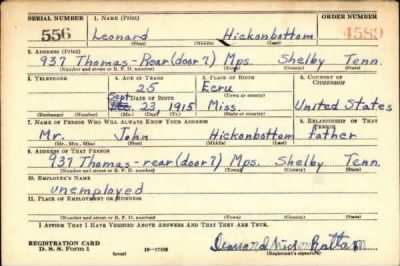 SERIAL NUMBER 1. NAME (Print) ORDER NUMBER
556 Leonard Hickonbottom 4589
(First) (Middle) (Last)
2. ADDRESS (Print)
937 Thomas-Rear (door 7) Mps. Shelby Tenn.
(Number and street or R. F. D. number) (Town) (County) (State)
3. TELEPHONE 4. AGE IN YEARS 5. PLACE OF BIRTH 6. COUNTRY OF CITIZENSHIP
25 Ecru
Sept DATE OF BIRTH (Town or county)
23, 1915 Miss. United States
(Exchange) (Number) (Mo.) (Day) (Yr.) (State or country)
7. NAME OF PERSON WHO WILL ALWAYS KNOW YOUR ADDRESS 8. RELATIONSHIP OF THAT PERSON
Mr. John Hickonbottom father
(Mr., Mrs., Miss) (First) (Middle) (Last)
9. ADDRESS OF THAT PERSON
937 Thomas-rear (door 7) Mps. Shelby Tenn.
(Number and street or R. F. D. number) (Town) (County) (State)
10. EMPLOYER'S NAME
unemployed
11. PLACE OF EMPLOYMENT OR BUSINESS
(Number and street or R. F. D. number) (Town) (County) (State)
I AFFIRM THAT I HAVE VERIFIED ABOVE ANSWERS AND THAT THEY ARE TRUE.
REGISTRATION CARD
D. S. S. Form 1 (over) (Registrant's signature)